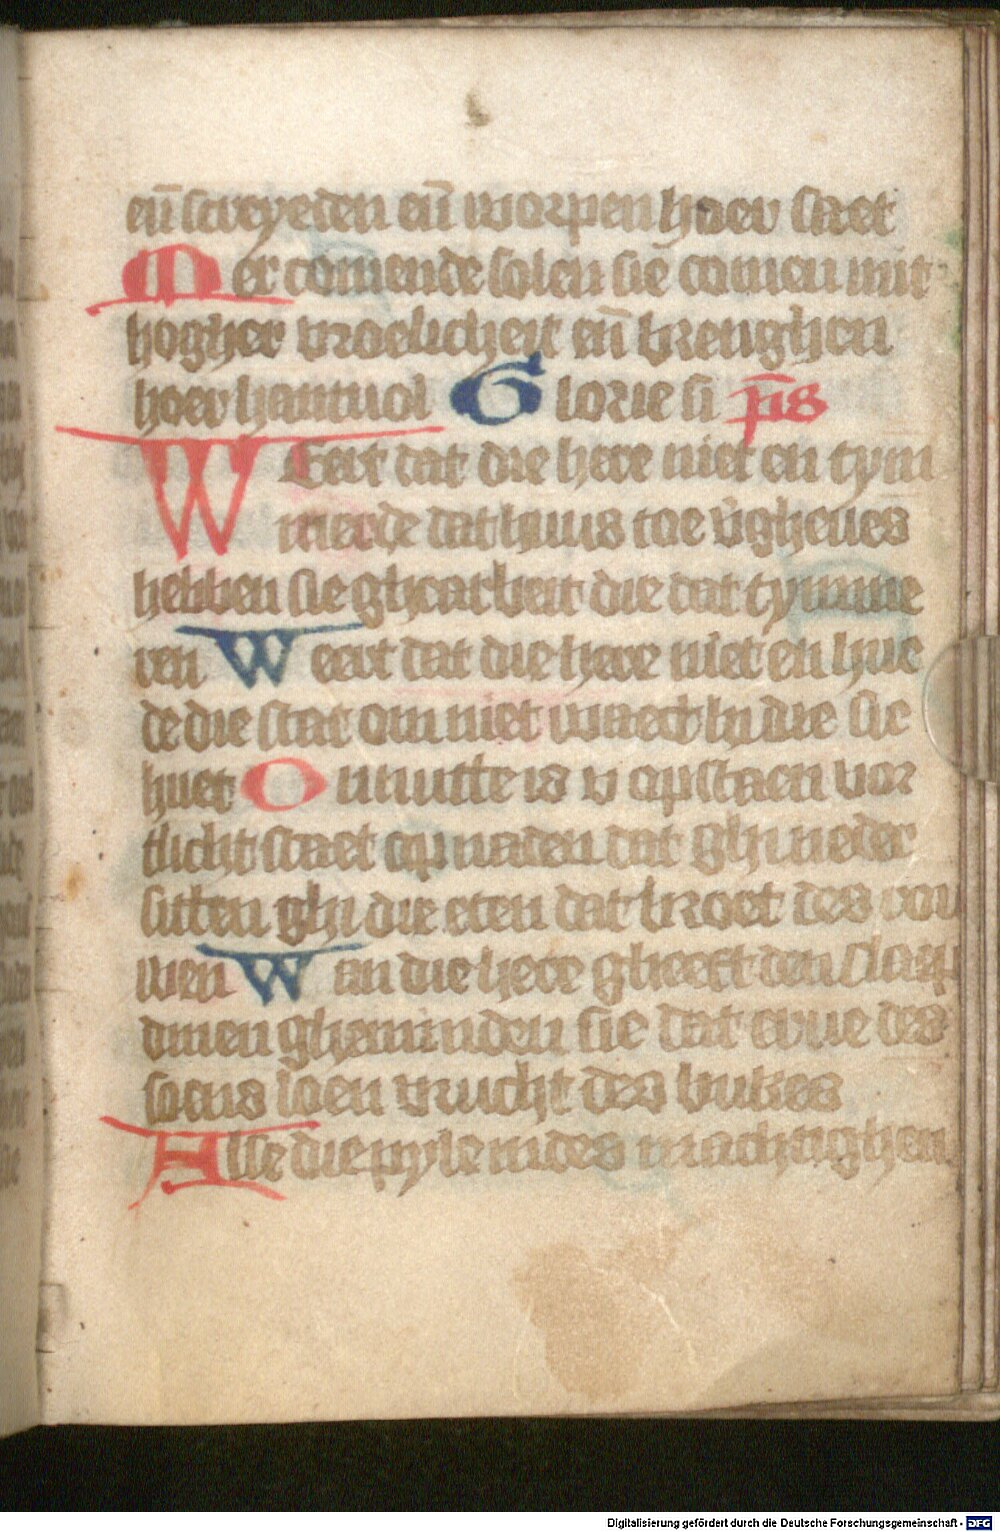 en̄ screyeden en̄ worpen hoer saet
Mer comende solen sie comen mit
hogher vroelicheit en̄ brenghen
hoer hantuol Glorie si p̄s
WEert dat die here niet en tym
merde dat huus toe v̄gheues
hebben sie ghearbeit die dat tymme
ren Weert dat die here niet en hue
de die stat om niet waect hi die sie
huet Onnutte is v opstaen vor
tlicht staet op naden dat ghi neder
sitten ghi die eten dat broet des rou
wen Wan die here gheeft den slaep
gheminden sie dat erue des
soen vrucht des bukes
Alse die pyle in des machtighen
Digitalisierung gefördert durch die Deutsche Forschungsgemeinschaft - DFG